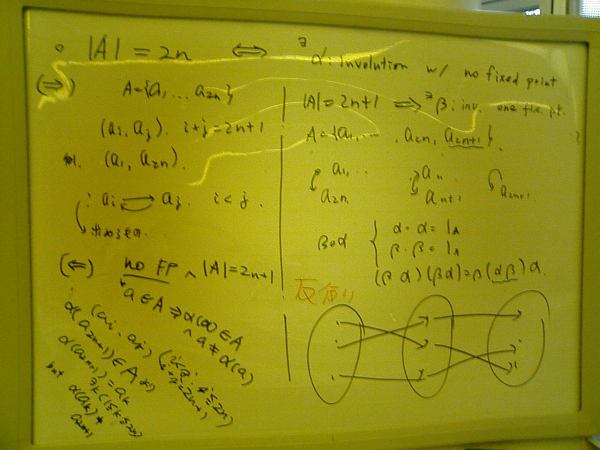 |A| = 2n ⇔ ∃α: involution w/ no fixed point
(⇒) A={a₁, ... a₂ₙ}
(aᵢ, aⱼ). i+j=2n+1
(a₁, a₂ₙ).
aᵢ ⇄ aⱼ. i<j.
(⇐) no FP ∧ |A|=2n+1
a∈A ⇒ α(a)∈A
∧ a≠α(a)
(aᵢ, aⱼ) (i<j, i,j≤2n, i+j=2n+1)
α(a₂ₙ₊₁)∈A
α(a₂ₙ₊₁)=aₖ
but α(aₖ)≠
a₂ₙ₊₁
|A|=2n+1 ⇒ ∃β: inv. one fix. pt.
A={a₁, ... , a₂ₙ, a₂ₙ₊₁}.
a₁, ... aₙ
a₂ₙ aₙ₊₁ a₂ₙ₊₁
β∘α { α·α = 1_A
β·β = 1_A
(βα)(βα)=β(αβ)α